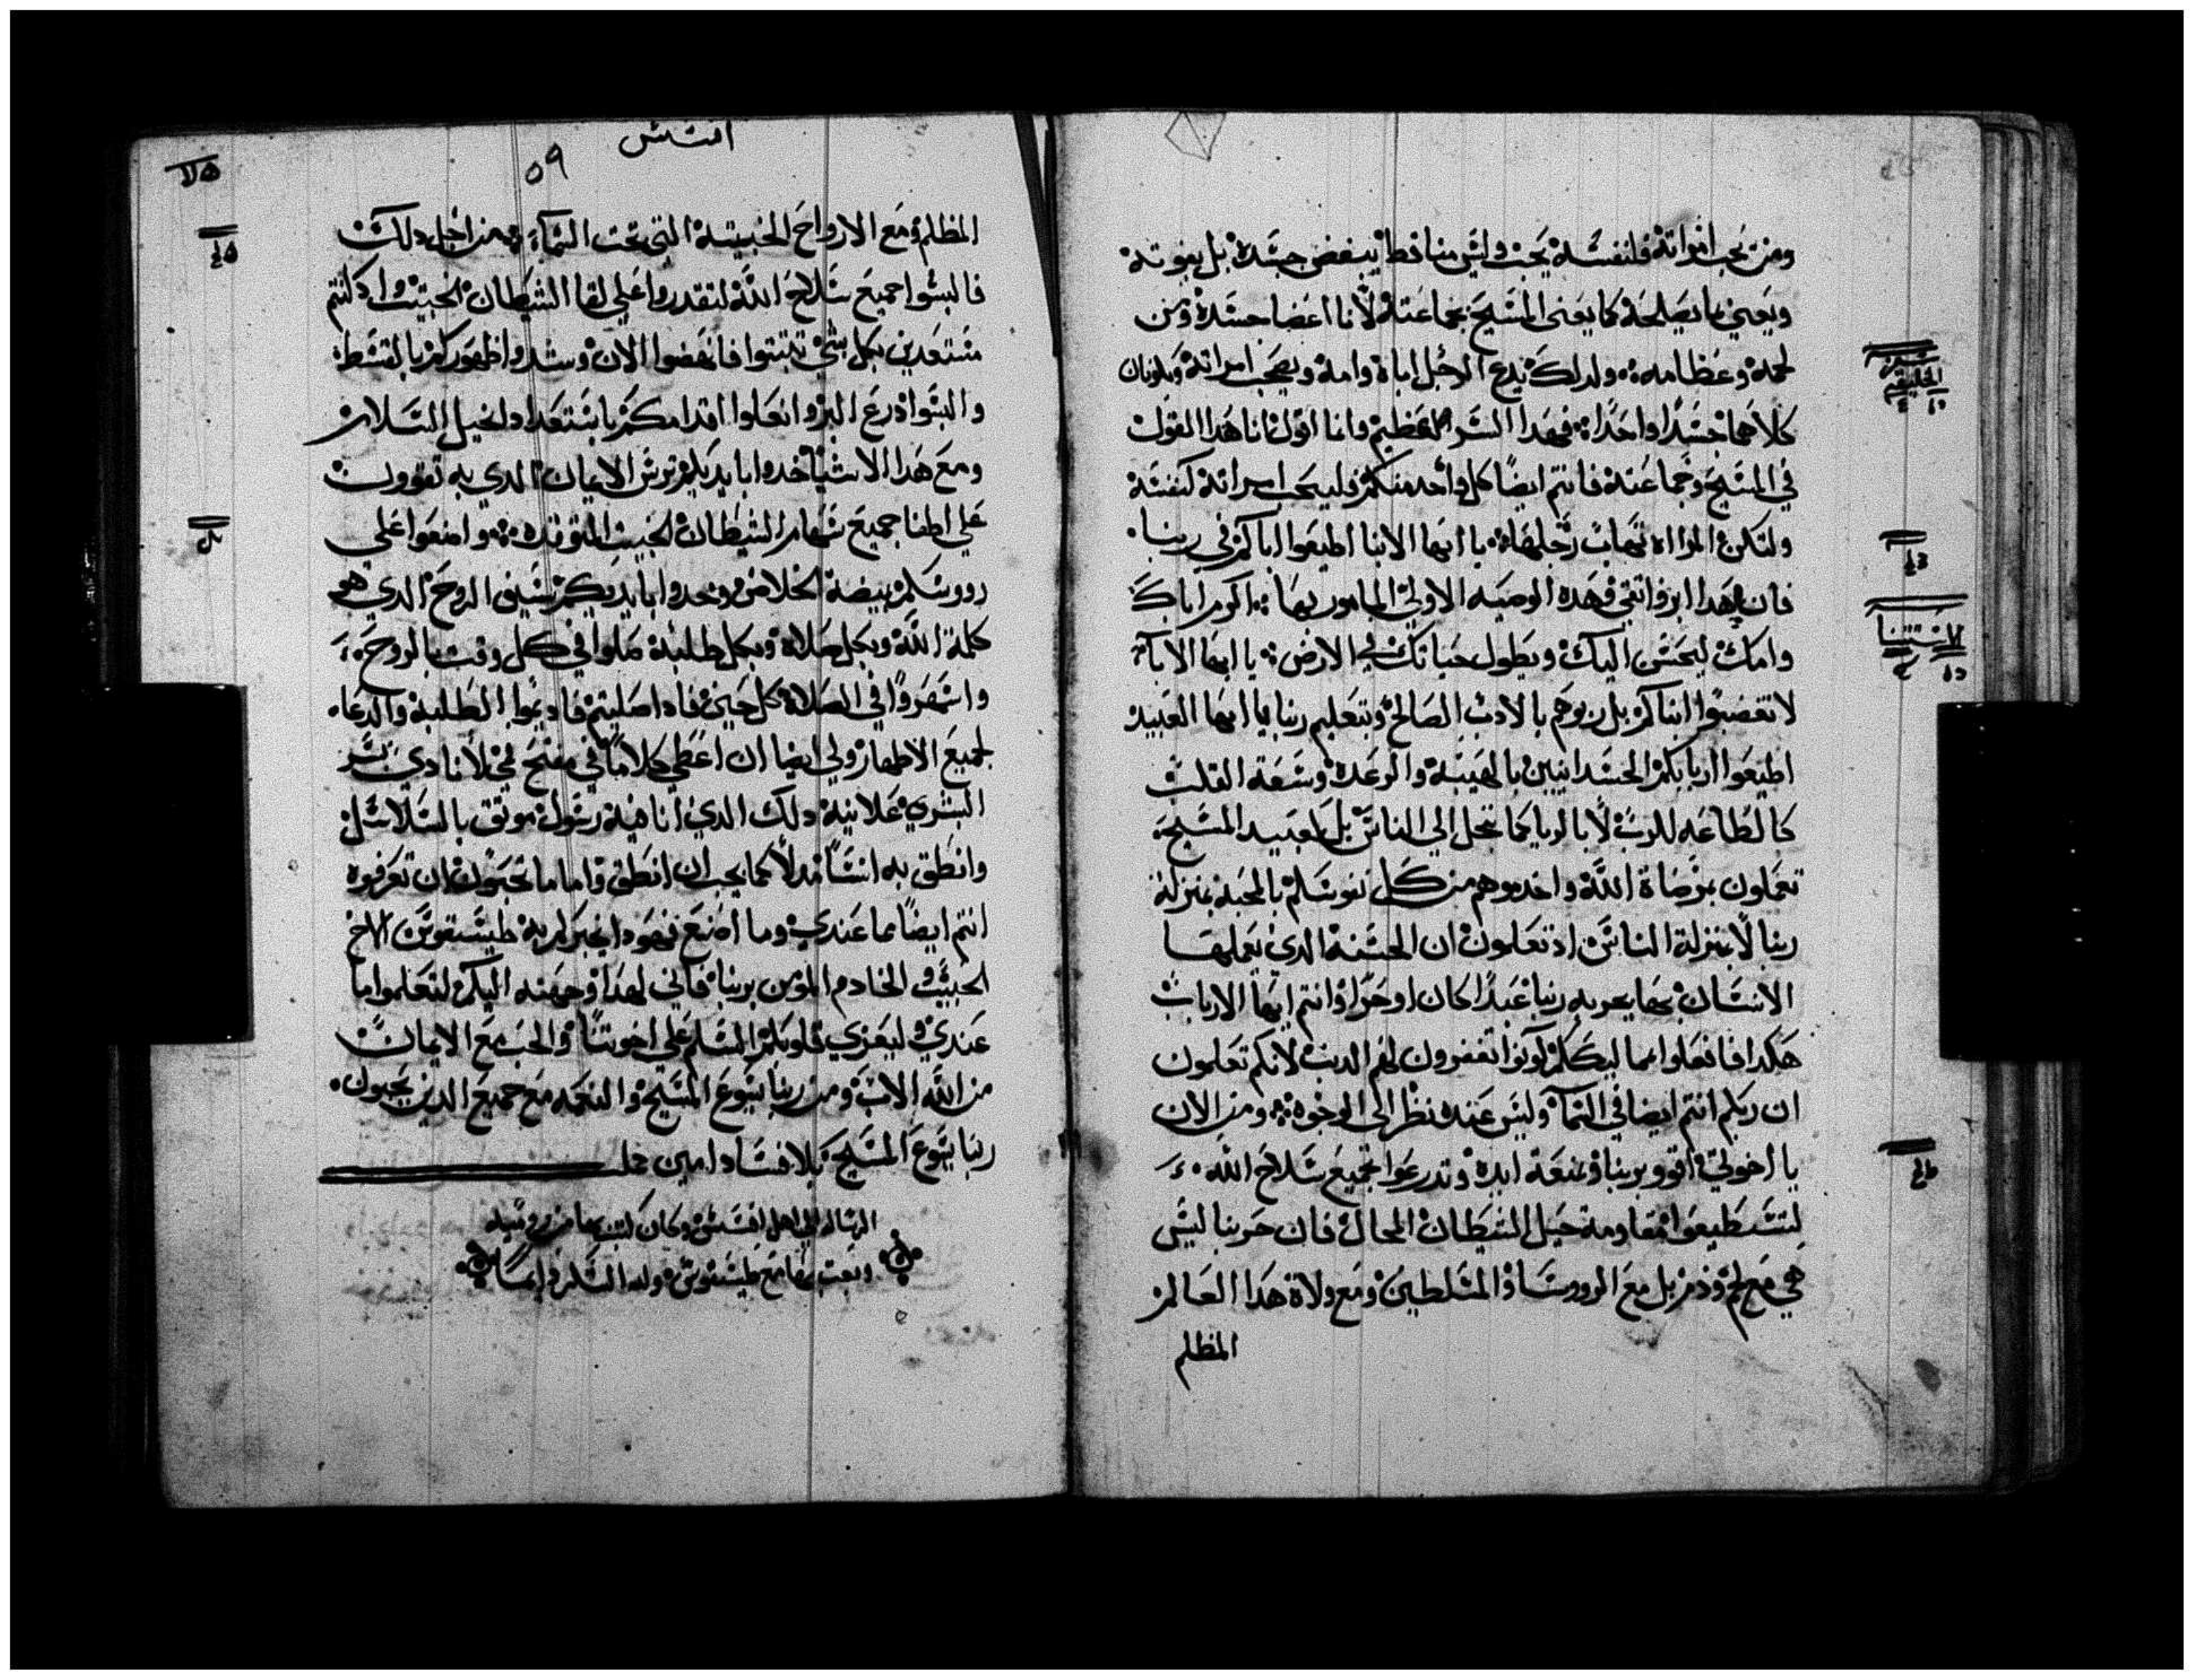 ومن يحب امراته فلنفسه يحب وليس منا قط يبغض جسده بل يقوته
ويعني بما يصلحه كما يعنى المسيح بجماعته لأنا اعضا جسده ومن
لحمه وعظامه ولدلك يدع الرجل اباه وامه ويصحب امراته ويكونان
كلاهما جسدًا واحدًا فهدا السر العظيم وانا اقول انا هدا القول
في المسيح وجماعته فانتم ايضًا كل واحد منكم فليحب امراته كنفسه
ولتكن المراه تهاب رجلها يا ايها الابنا اطيعوا اباكم في ربنا
فان هدا بر واتقى فهده الوصيه الاولي المامور بها اكرم اباك
وامك ليحسن اليك ويطول حياتك في الارض يا ايها الابآ
لا تغضبوا ابناكم بل ربوهم بالادب الصالح وبتعليم ربنا يا ايها العبيد
اطيعوا اربابكم الجسدانيين بالهيبة والرعدة وسعة القلب
كالطاعه للرب لا بالريا كما تجمل الي الناس بل كعبيد المسيح
تعملون مرضاة الله واخدموهم من كل نفوسكم بالمحبة بمنزلة
ربنا لا بمنزلة الناس اد تعلمون ان الحسنة الدي يعملها
الانسان بها يجزيه ربنا عبدًا كان او حرًا وانتم ايها الارباب
هكدا فافعلوا بمماليككم كونوا تغفرون لهم الدنب لانكم تعلمون
ان ربكم انتم ايضا في السمآ وليس عنده نظر الى الوجوه ومن الان
يا اخوتي اقووا بربنا وبمنعة ايده وتدرعوا بجميع سلاح الله
لتستطيعوا مقاومة حيل الشيطان المحال فان حربنا ليس
هي مع لحم ودم بل مع الروسا والمسلطين ومع ولاة هدا العالم
المظلم
سفر
الخليقه
الاستتنا
افسس
٥٩
المظلم ومع الارواح الخبيثة التي تحت السمآ من اجل دلك
فالبسوا جميع سلاح الله لتقدروا على لقا الشيطان الخبيث واد كنتم
مستعدين بكل شي تثبتوا فانهضوا الان وشدوا ظهوركم بالقسط
والبسوا درع البر وانعلوا اقدامكم باستعداد انجيل السلام
ومع هدا الاشيا خدوا بايديكم ترس الايمان الدي به تقوون
على اطفا جميع سهام الشيطان الخبيث المتوقده وامنعوا على
رووسكم بيضة الخلاص وخدوا بايديكم سيف الروح الدي هو
كلمة الله وبكل صلاة وبكل طلبة صلوا في كل وقت بالروح
واسهروا في الصلاة كل حين فادا صليتم فاديموا الطلبة والدعا
لجميع الاطهار ولي ايضا ان اعطي كلامًا في مفتح في لأنادي بسر
البشري علانية دلك الدي انا فيه رسول موتق بالسلاسل
وانطق به انسًا مدلاً كما يجب ان انطق واما ما تحبون ان تعرفوه
انتم ايضًا مما عندي وما اصنع فهودا يخبركم به طيستقوس الاخ
الحبيب والخادم المومن بربنا فاني لهدا وجهته اليكم لتعلموا ما
عندي وليعزي قلوبكم السلم على اخوتنا والحب مع الايمان
من الله الاب ومن ربنا يسوع المسيح والنعمه مع جميع الدين يحبون
ربنا يسوع المسيح بلا فساد امين
الرساله الي اهل افسس وكان كتب بها من روميه
وبعت بها مع طيستقوس ولله الشكر دايما